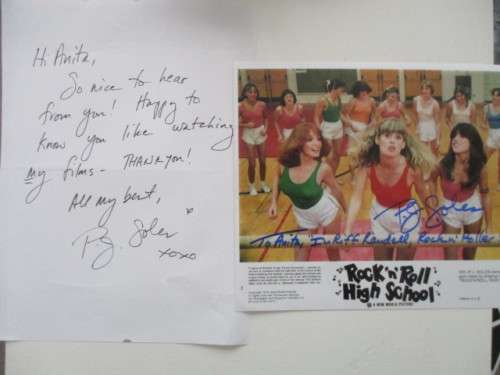 Hi Anita,
So nice to hear
from you! Happy to
know you like watching
my films - THANK YOU!
All my best,
P.J. Soles
xoxo
P.J. Soles
To Anita, I'm Riff Randell, Rock n' Roller
Rock 'n' Roll
High School
A NEW WORLD PICTURE